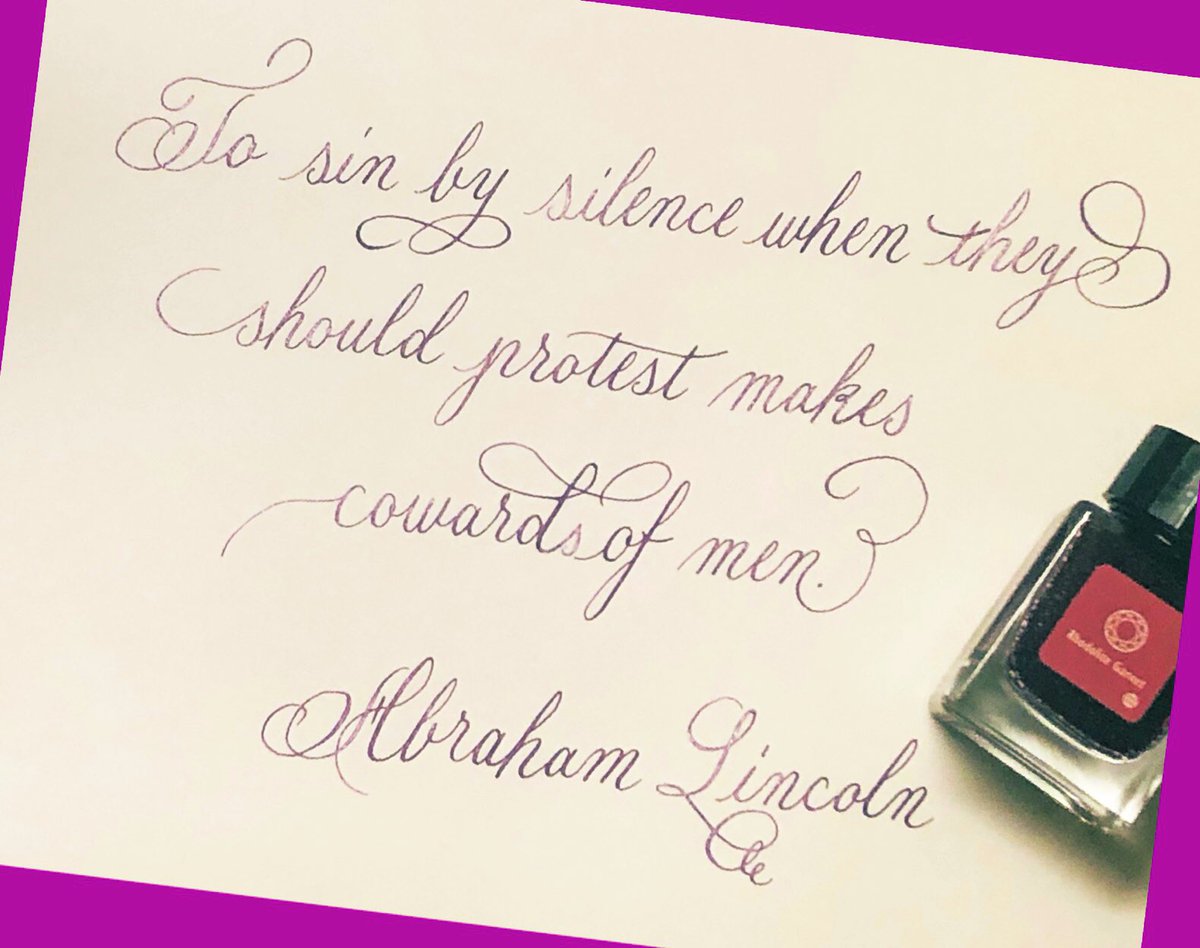 To sin by silence when they
should protest makes
cowards of men.
Abraham Lincoln
Rhodolite Garnet